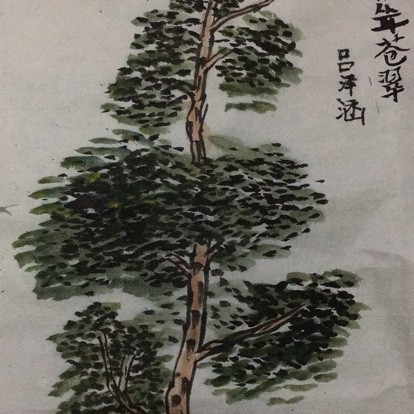 苍翠
吕泽涵